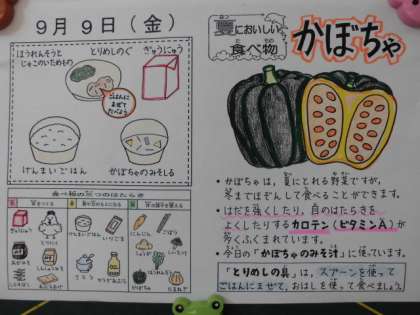 9月9日(金)
ほうれんそうと
じゃこのいためもの
とりめしのぐ
ぎゅうにゅう
ごはんに
まぜて
たべよう
げんまいごはん
かぼちゃのみそしる
食べ物の三つのはたらき
ぎゅうにゅう
とりにく
みそ
げんまいごはん
さとう
にんじん
ごぼう
かぼちゃ
夏においしい
食べ物
かぼちゃ
・かぼちゃは、夏にとれる野菜ですが、
冬までほぞんして食べることができます。
・はだを強くしたり、目のはたらきを
よくしたりするカロテン(ビタミンA)が
多くふくまれています。
・今日の「かぼちゃのみそ汁」に使っています。
「とりめしの具」は、スプーンを使って
ごはんにまぜて、おはしを使って食べましょう。